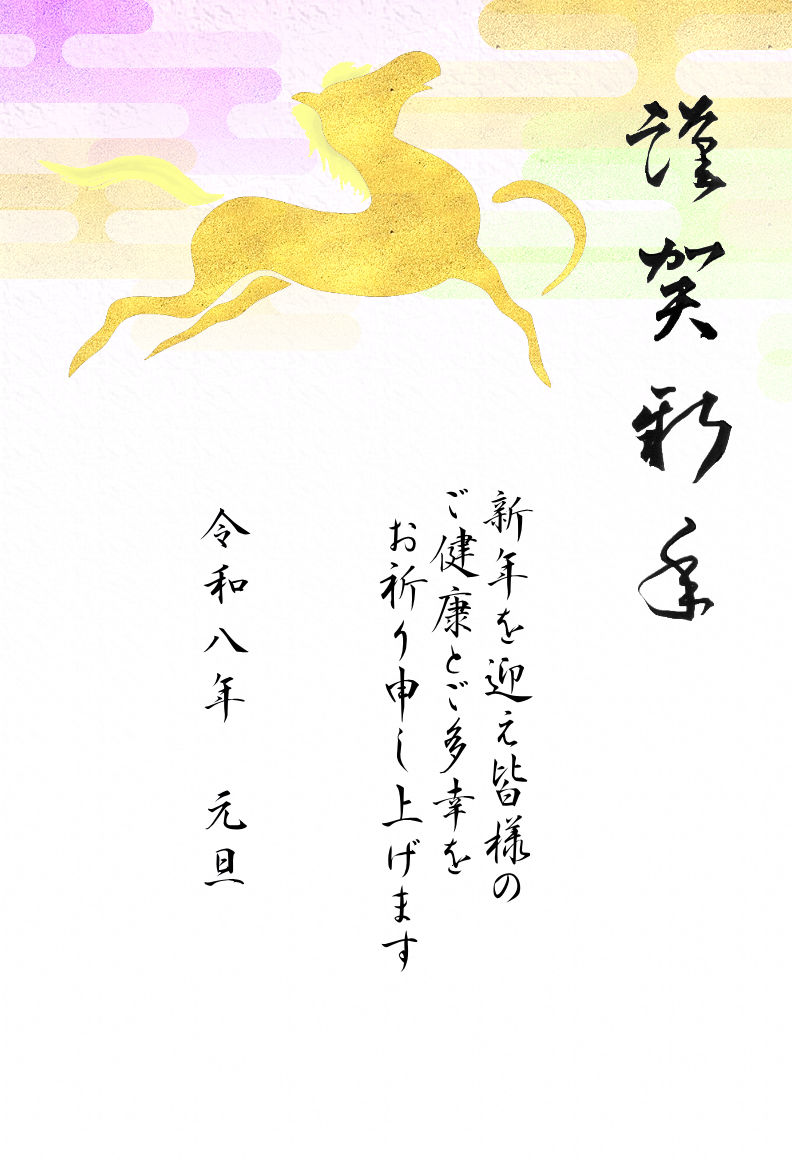 謹賀新年
新年を迎え皆様の
ご健康とご多幸を
お祈り申し上げます
令和八年 元旦